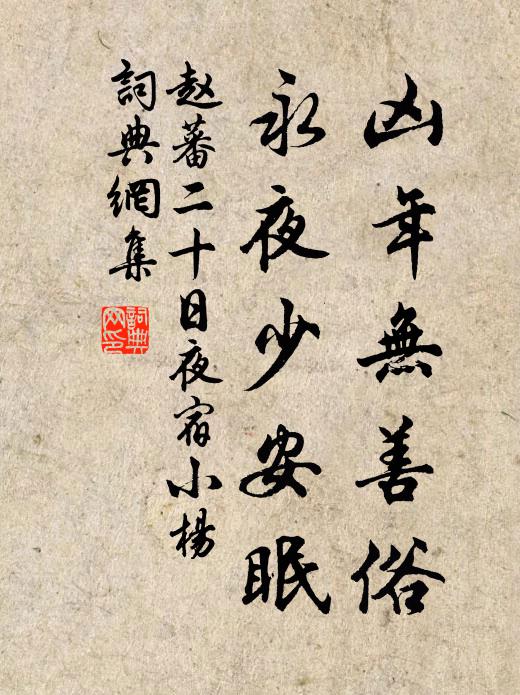 凶年無善俗
永夜少安眠
赵蕃二十日夜宿小楊
詞典網集
詞典
网印